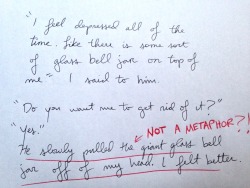 "I feel depressed all of the
time. Like there is some sort
of glass bell jar on top of
me" I said to him.
"Do you want me to get rid of it?"
"Yes."
NOT A METAPHOR?!
He slowly pulled the giant glass bell
jar off of my head. I felt better.